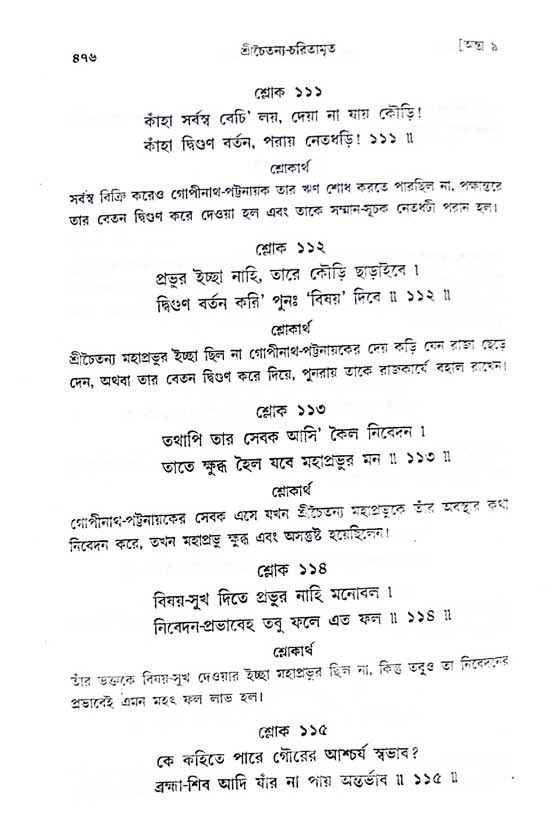 ৪৭৬
শ্রীচৈতন্য-চরিতামৃত
[অন্ত্য ৯
শ্লোক ১১১
কাঁহা সর্বস্ব বেচি' লয়, দেয়া না যায় কৌড়ি!
কাঁহা দ্বিগুণ বর্তন, পরায় নেতধড়ি! ১১১ ॥
শ্লোকার্থ
সর্বস্ব বিক্রি করেও গোপীনাথ-পট্টনায়ক তার ঋণ শোধ করতে পারছিল না, পক্ষান্তরে
তার বেতন দ্বিগুণ করে দেওয়া হল এবং তাকে সম্মান-সূচক নেতধটী পরান হল।
শ্লোক ১১২
প্রভুর ইচ্ছা নাহি, তারে কৌড়ি ছাড়াইবে ।
দ্বিগুণ বর্তন করি' পুনঃ 'বিষয়' দিবে ॥ ১১২ ॥
শ্লোকার্থ
শ্রীচৈতন্য মহাপ্রভুর ইচ্ছা ছিল না গোপীনাথ-পট্টনায়কের দেয় কড়ি যেন রাজা ছেড়ে
দেন, অথবা তার বেতন দ্বিগুণ করে দিয়ে, পুনরায় তাকে রাজকার্যে বহাল রাখেন।
শ্লোক ১১৩
তথাপি তার সেবক আসি' কৈল নিবেদন ।
তাতে ক্ষুব্ধ হৈল যবে মহাপ্রভুর মন ॥ ১১৩ ॥
শ্লোকার্থ
গোপীনাথ-পট্টনায়কের সেবক এসে যখন শ্রীচৈতন্য মহাপ্রভুকে তাঁর অবস্থার কথা
নিবেদন করে, তখন মহাপ্রভু ক্ষুব্ধ এবং অসন্তুষ্ট হয়েছিলেন।
শ্লোক ১১৪
বিষয়-সুখ দিতে প্রভুর নাহি মনোবল ।
নিবেদন-প্রভাবেহ তবু ফলে এত ফল ॥ ১১৪ ॥
শ্লোকার্থ
তাঁর ভক্তকে বিষয়-সুখ দেওয়ার ইচ্ছা মহাপ্রভুর ছিল না, কিন্তু তবুও তা নিবেদনের
প্রভাবেই এমন মহৎ ফল লাভ হল।
শ্লোক ১১৫
কে কহিতে পারে গৌরের আশ্চর্য স্বভাব?
ব্রহ্মা-শিব আদি যাঁর না পায় অন্তর্ভাব ॥ ১১৫ ॥